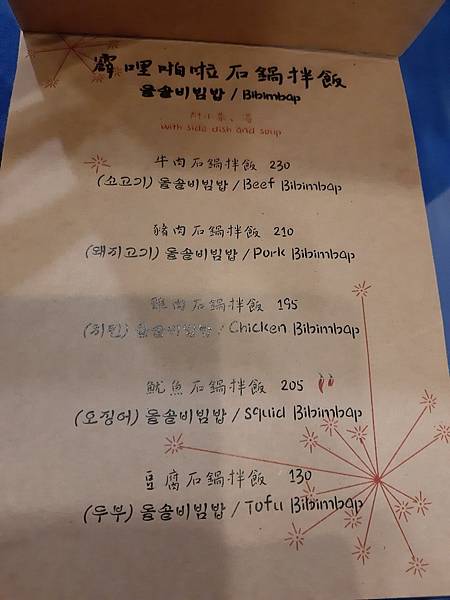 霹哩啪啦石鍋拌飯
돌솥비빔밥 / Bibimbap
附小菜、湯
with side dish and soup
牛肉石鍋拌飯 230
(소고기) 돌솥비빔밥 / Beef Bibimbap
豬肉石鍋拌飯 210
(돼지고기) 돌솥비빔밥 / Pork Bibimbap
雞肉石鍋拌飯 195
(치킨) 돌솥비빔밥 / Chicken Bibimbap
魷魚石鍋拌飯 205
(오징어) 돌솥비빔밥 / Squid Bibimbap
豆腐石鍋拌飯 130
(두부) 돌솥비빔밥 / Tofu Bibimbap